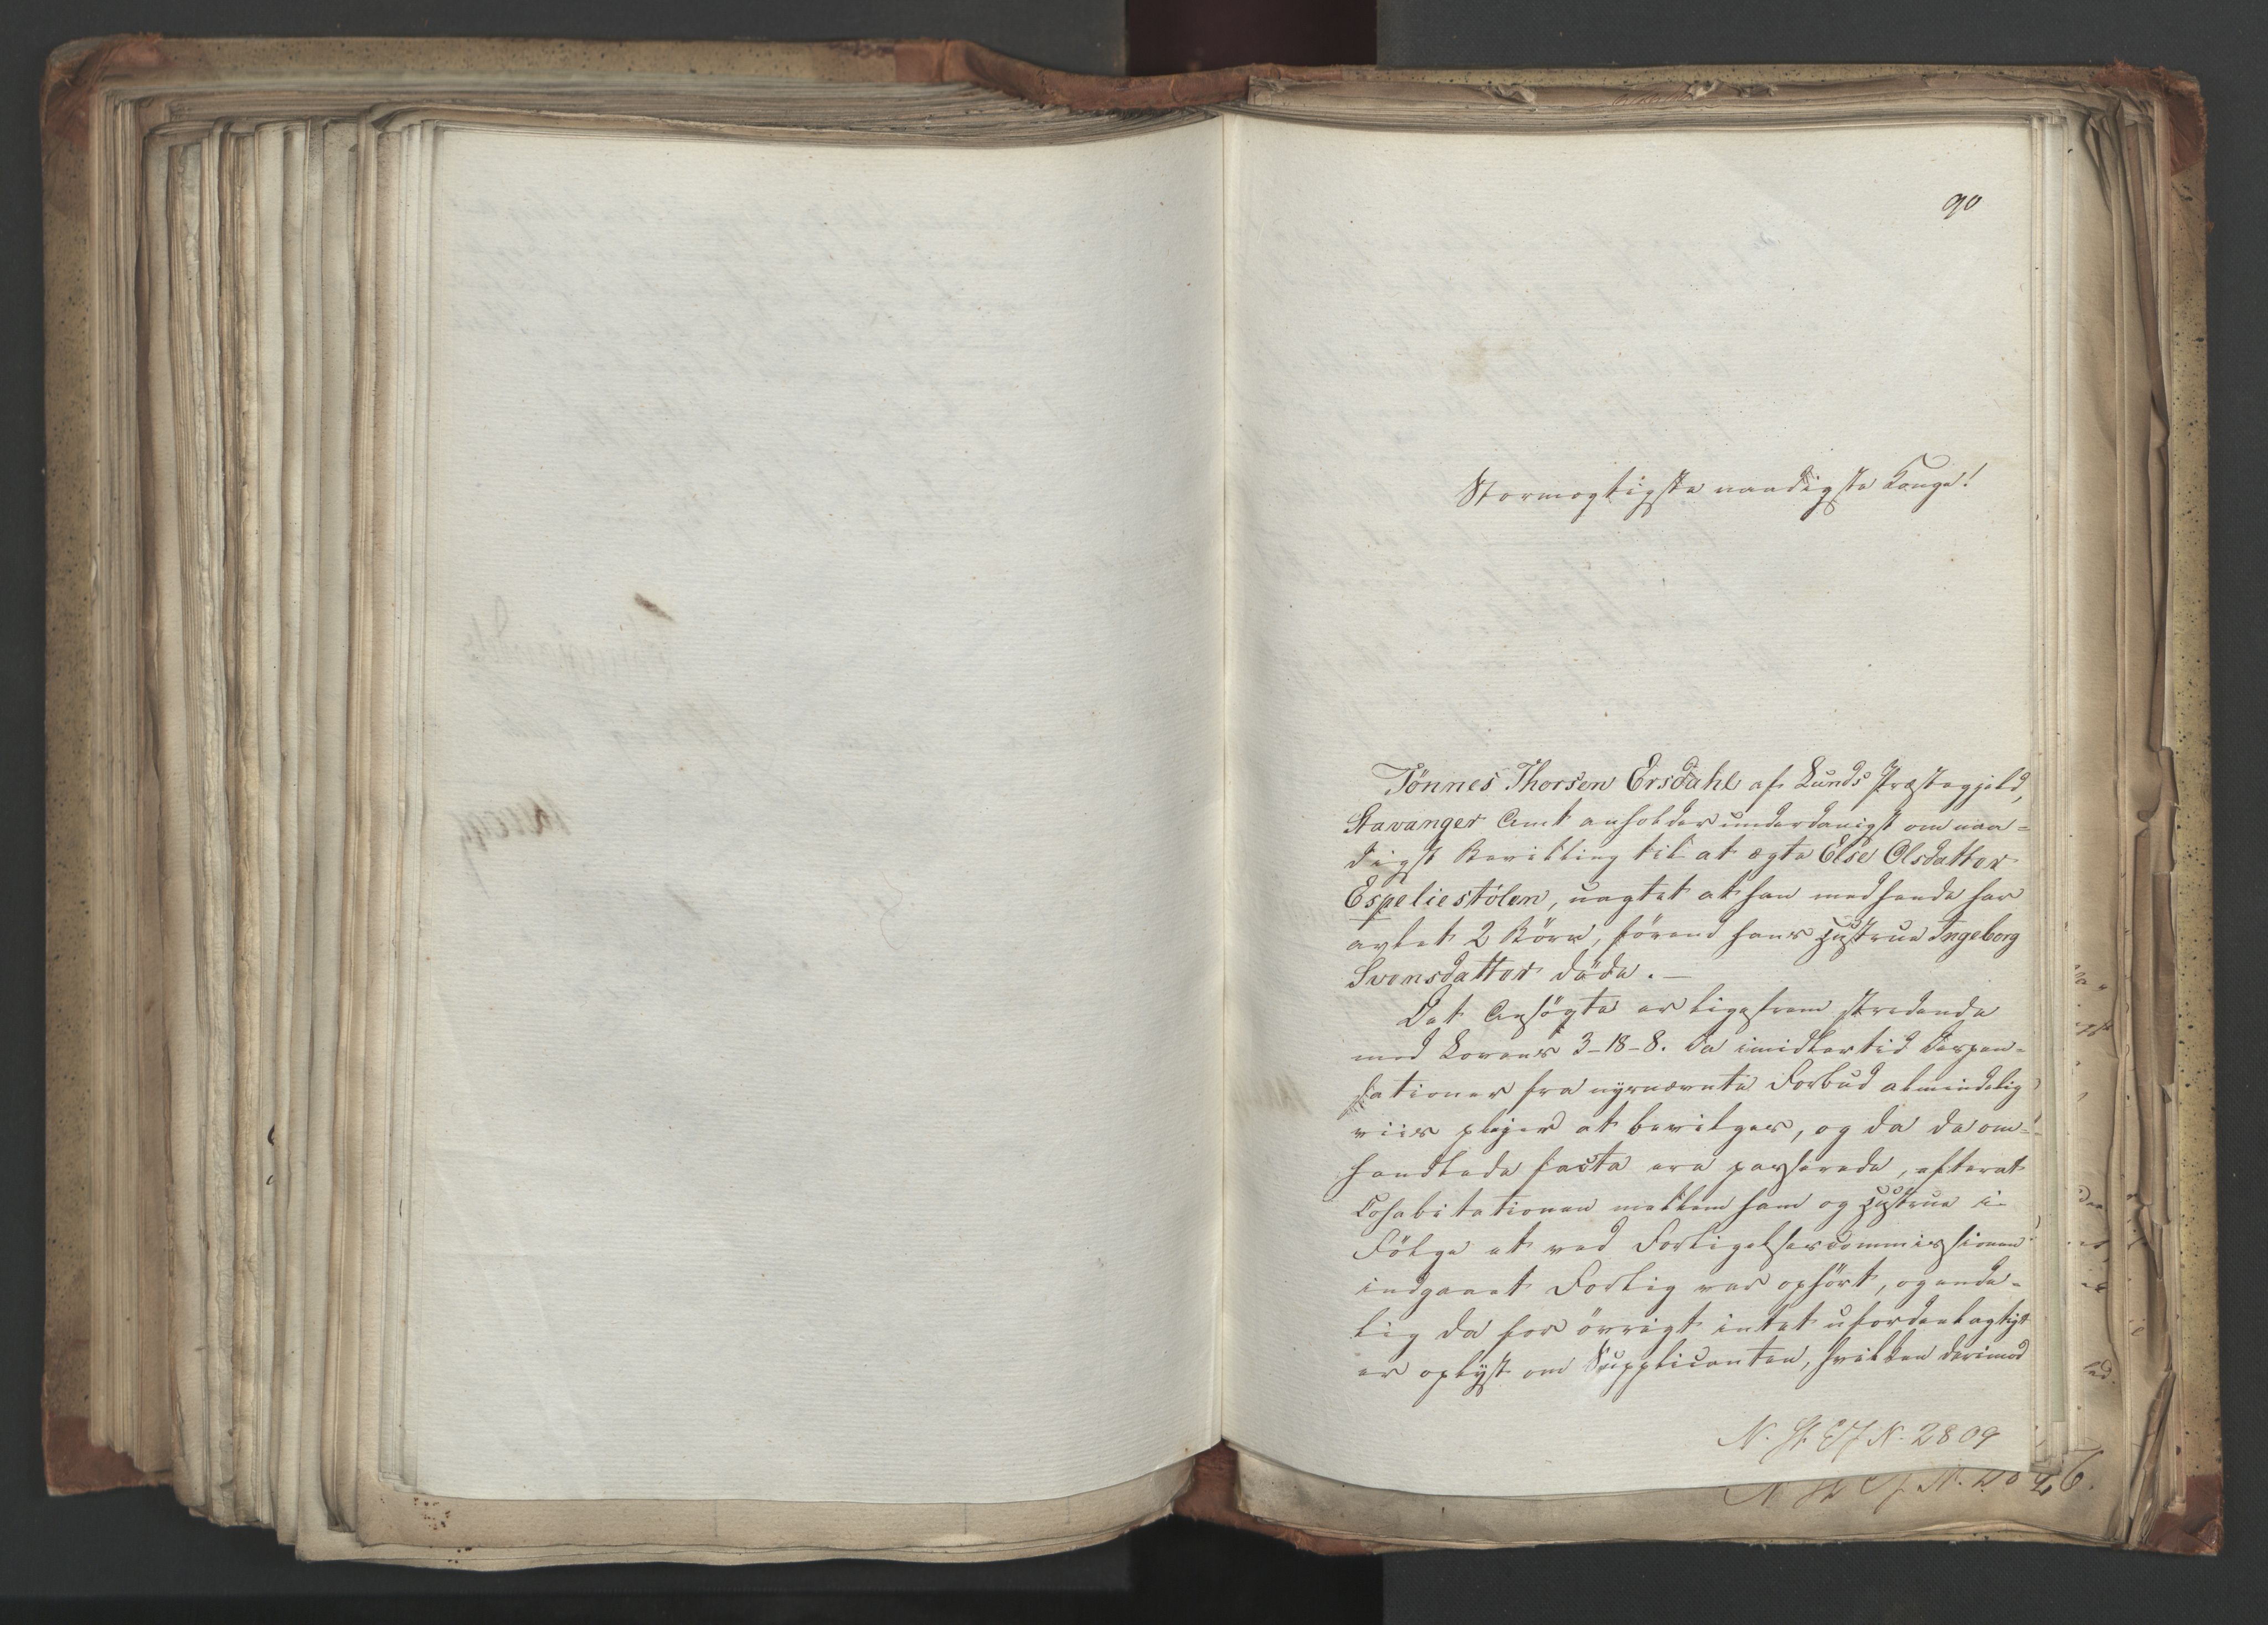 90
Stormægtigste naadigste Konge!
Tönnes Thorsen Ersdahl af Lunds Præstegjeld,
Stavanger Amt anholder underdanigst om naa=
digst Bevilling til at ægte Else Olsdatter
Espeliestölen, uagtet at han med hende har
avlet 2 Börn, förend hans Hustrue Ingeborg
Svensdatter döde. —
Det Ansögte er ligefrem stridende
mod Lovens 3-18-8. Da imidlertid Dispen=
sationer fra nysnævnte Forbud almindelig
viis pleier at bevilges, og da de om=
handlede facta ere passerede, efterat
Cohabitationen mellem ham og Hustrue i
Fölge et ved Forligelsescommissionen
indgaaet Forlig var ophört, og ende=
lig da for övrigt intet ufordeelagtigt
er oplyst om Supplicanten, hvilken derimod
N. St. E J N. 2809
26.